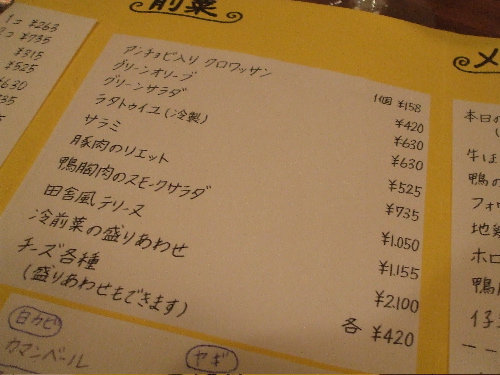 前菜
アンチョビ入り クロワッサン 1個 ¥158
グリーンオリーブ ¥420
グリーンサラダ ¥630
ラタトゥイユ(冷製) ¥630
サラミ ¥525
豚肉のリエット ¥735
鴨胸肉のスモークサラダ ¥1,050
田舎風テリーヌ ¥1,155
冷前菜の盛りあわせ ¥2,100
チーズ各種 各 ¥420
(盛りあわせもできます)
白カビ
カマンベール
ヤギ
1コ ¥263
コ ¥735
¥315
¥525
¥630
735
メ
本日の
牛ほ
鴨の
フォ
地
ホロ
鴨胸
仔羊